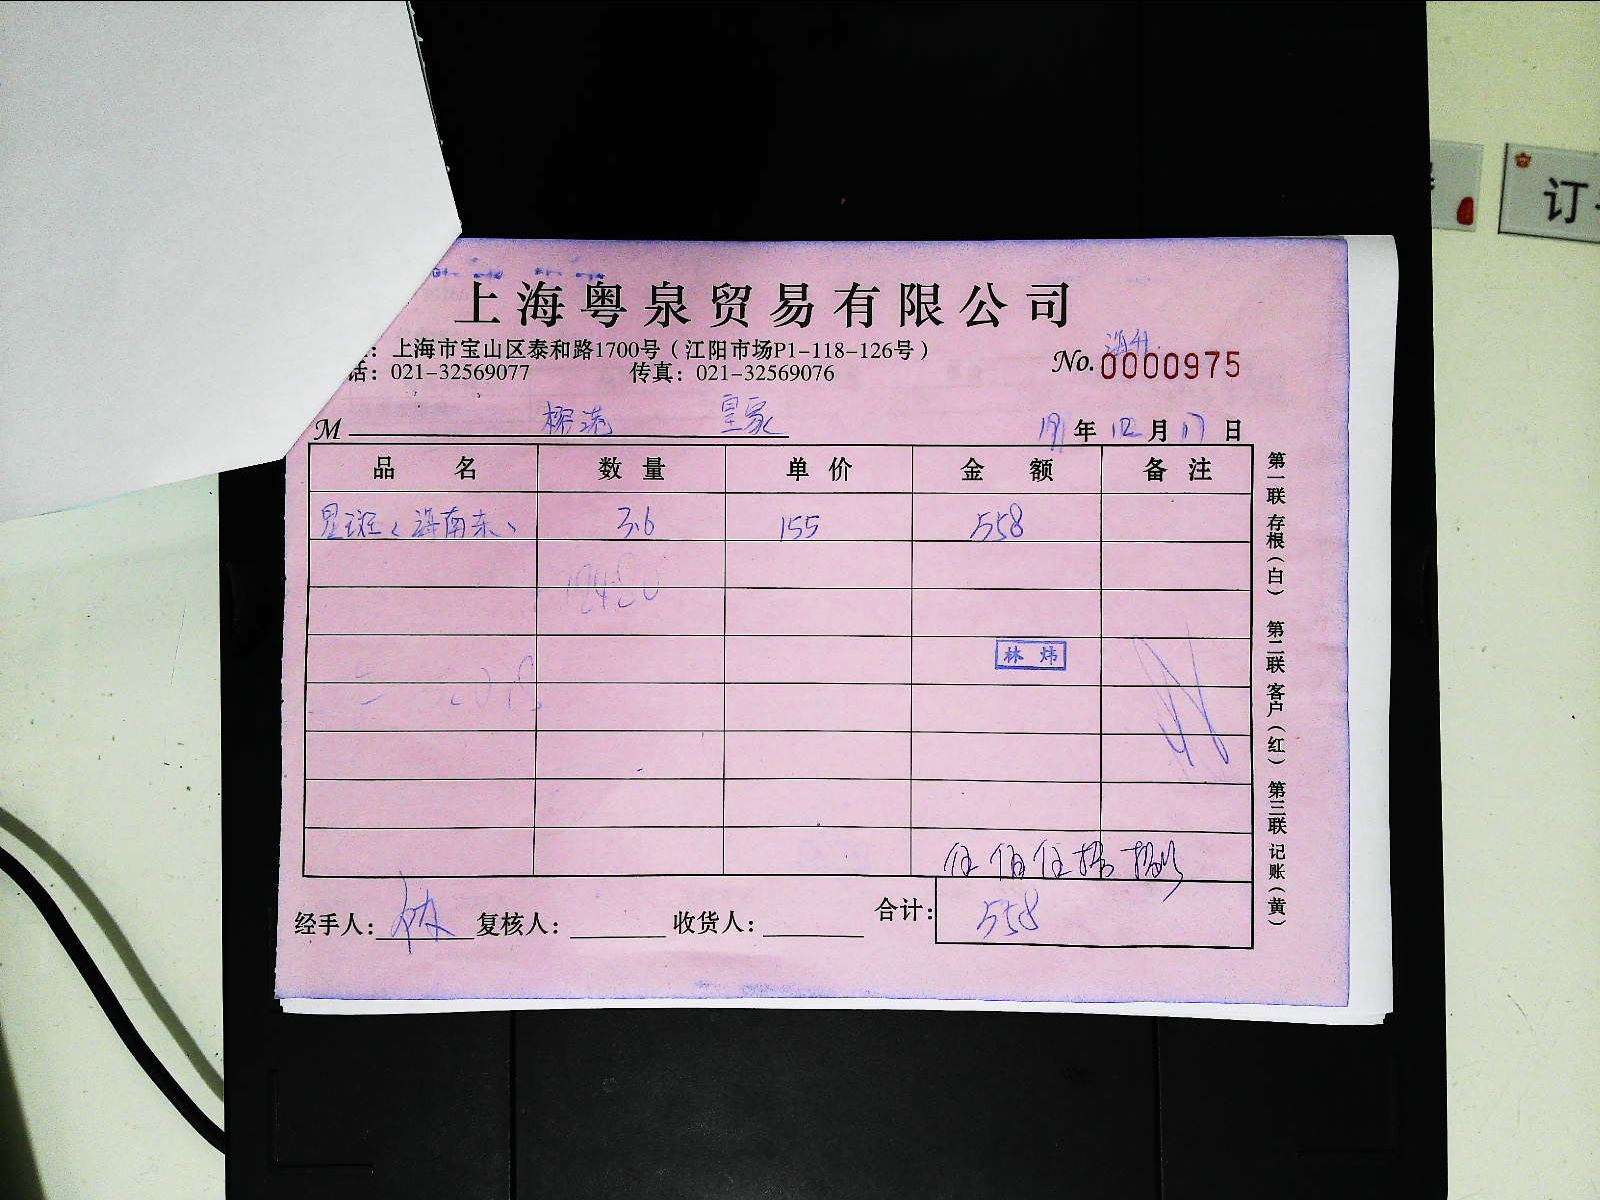 上海粤泉贸易有限公司
：上海市宝山区泰和路1700号（江阳市场P1-118-126号）
话：021-32569077 传真：021-32569076
No.0000975
M 皇家
19年12月17日
品 名 数 量 单 价 金 额 备 注
星斑（海南东） 3.6 155 558
林 炜
经手人： 复核人： 收货人： 合计：558
第一联 存根（白） 第二联 客户（红） 第三联 记账（黄）
订